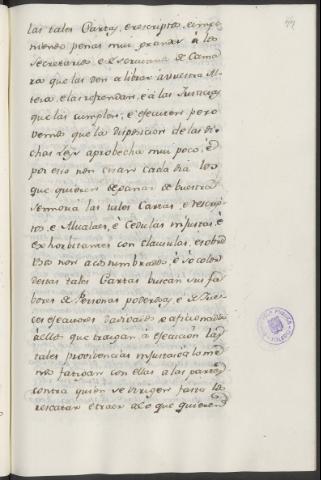 las tales Cartas, e rescriptos, e impo
niendo penas mui grandes à los
Secretarios e Escrivanos de Cama
ra que las den à librar à vuestra Al
teza, e las refrendan, e à las Justicias
que las cumplen, è executen, pero
vemos que la disposicion de las di
chas leyes aprobecha mui poco, è
por eso non cesan cada dia los
que quieren de ganar de vuestra
Señoria las tales Cartas, e rescrip
tos, e Alvalaes, è Cedulas injustas, è
exhorbitantes con clausulas, e obre
non acostumbrados, è so color
destas tales Cartas buscan su fa
bores de Personas poderosas, è de Jue
ces executores dadivados e aficionados
àellos que traigan à execucion las
tales provisiones injustas, o lo me
nos fatigan con ellas à las partes
contra quien se dirigen fasta la
rescatar e traer à lo que quieren